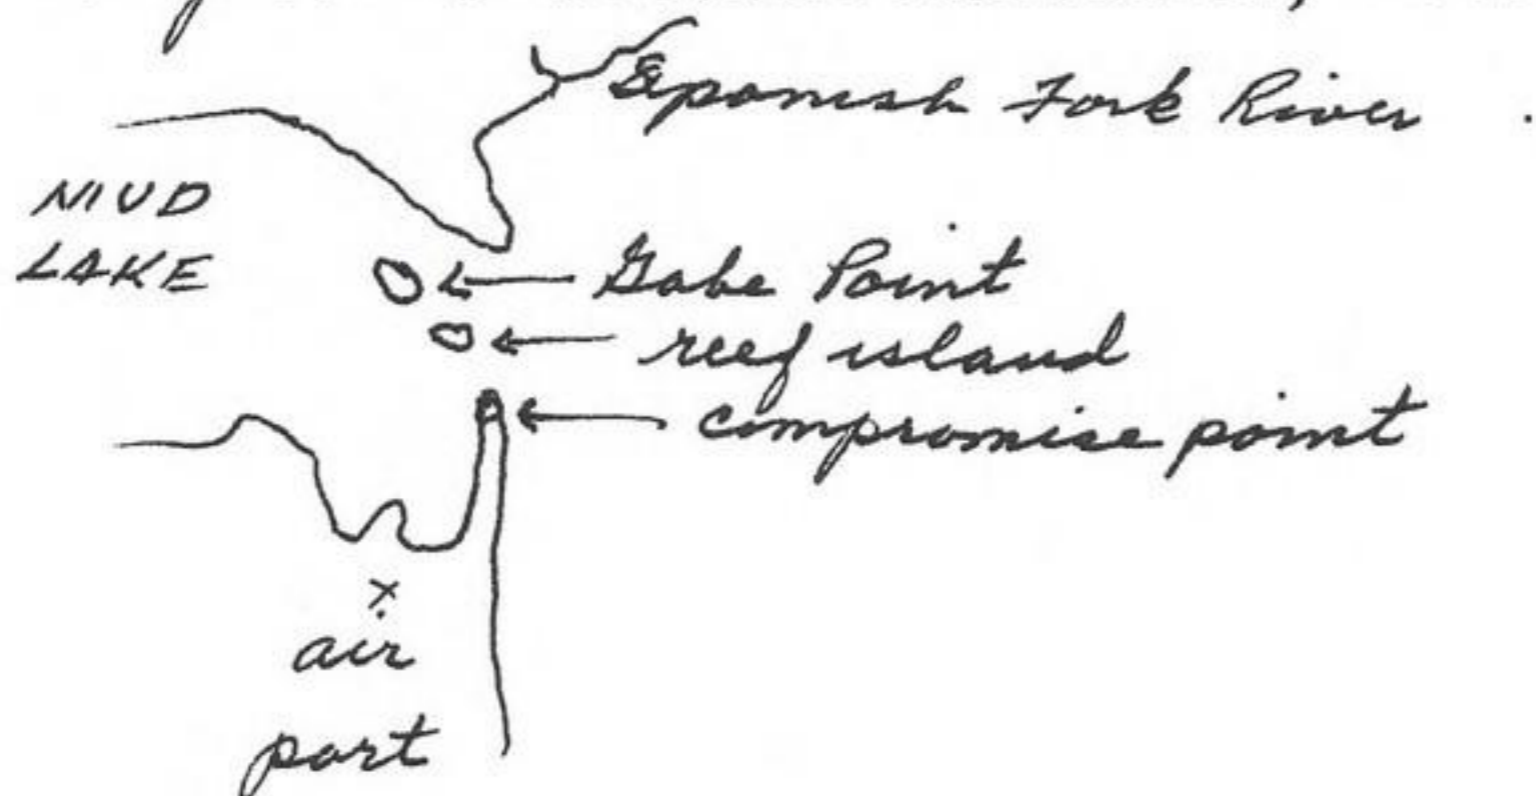 Spanish Fork River
LAKE
Gabe Point
reef island
compromise point
x
air
port